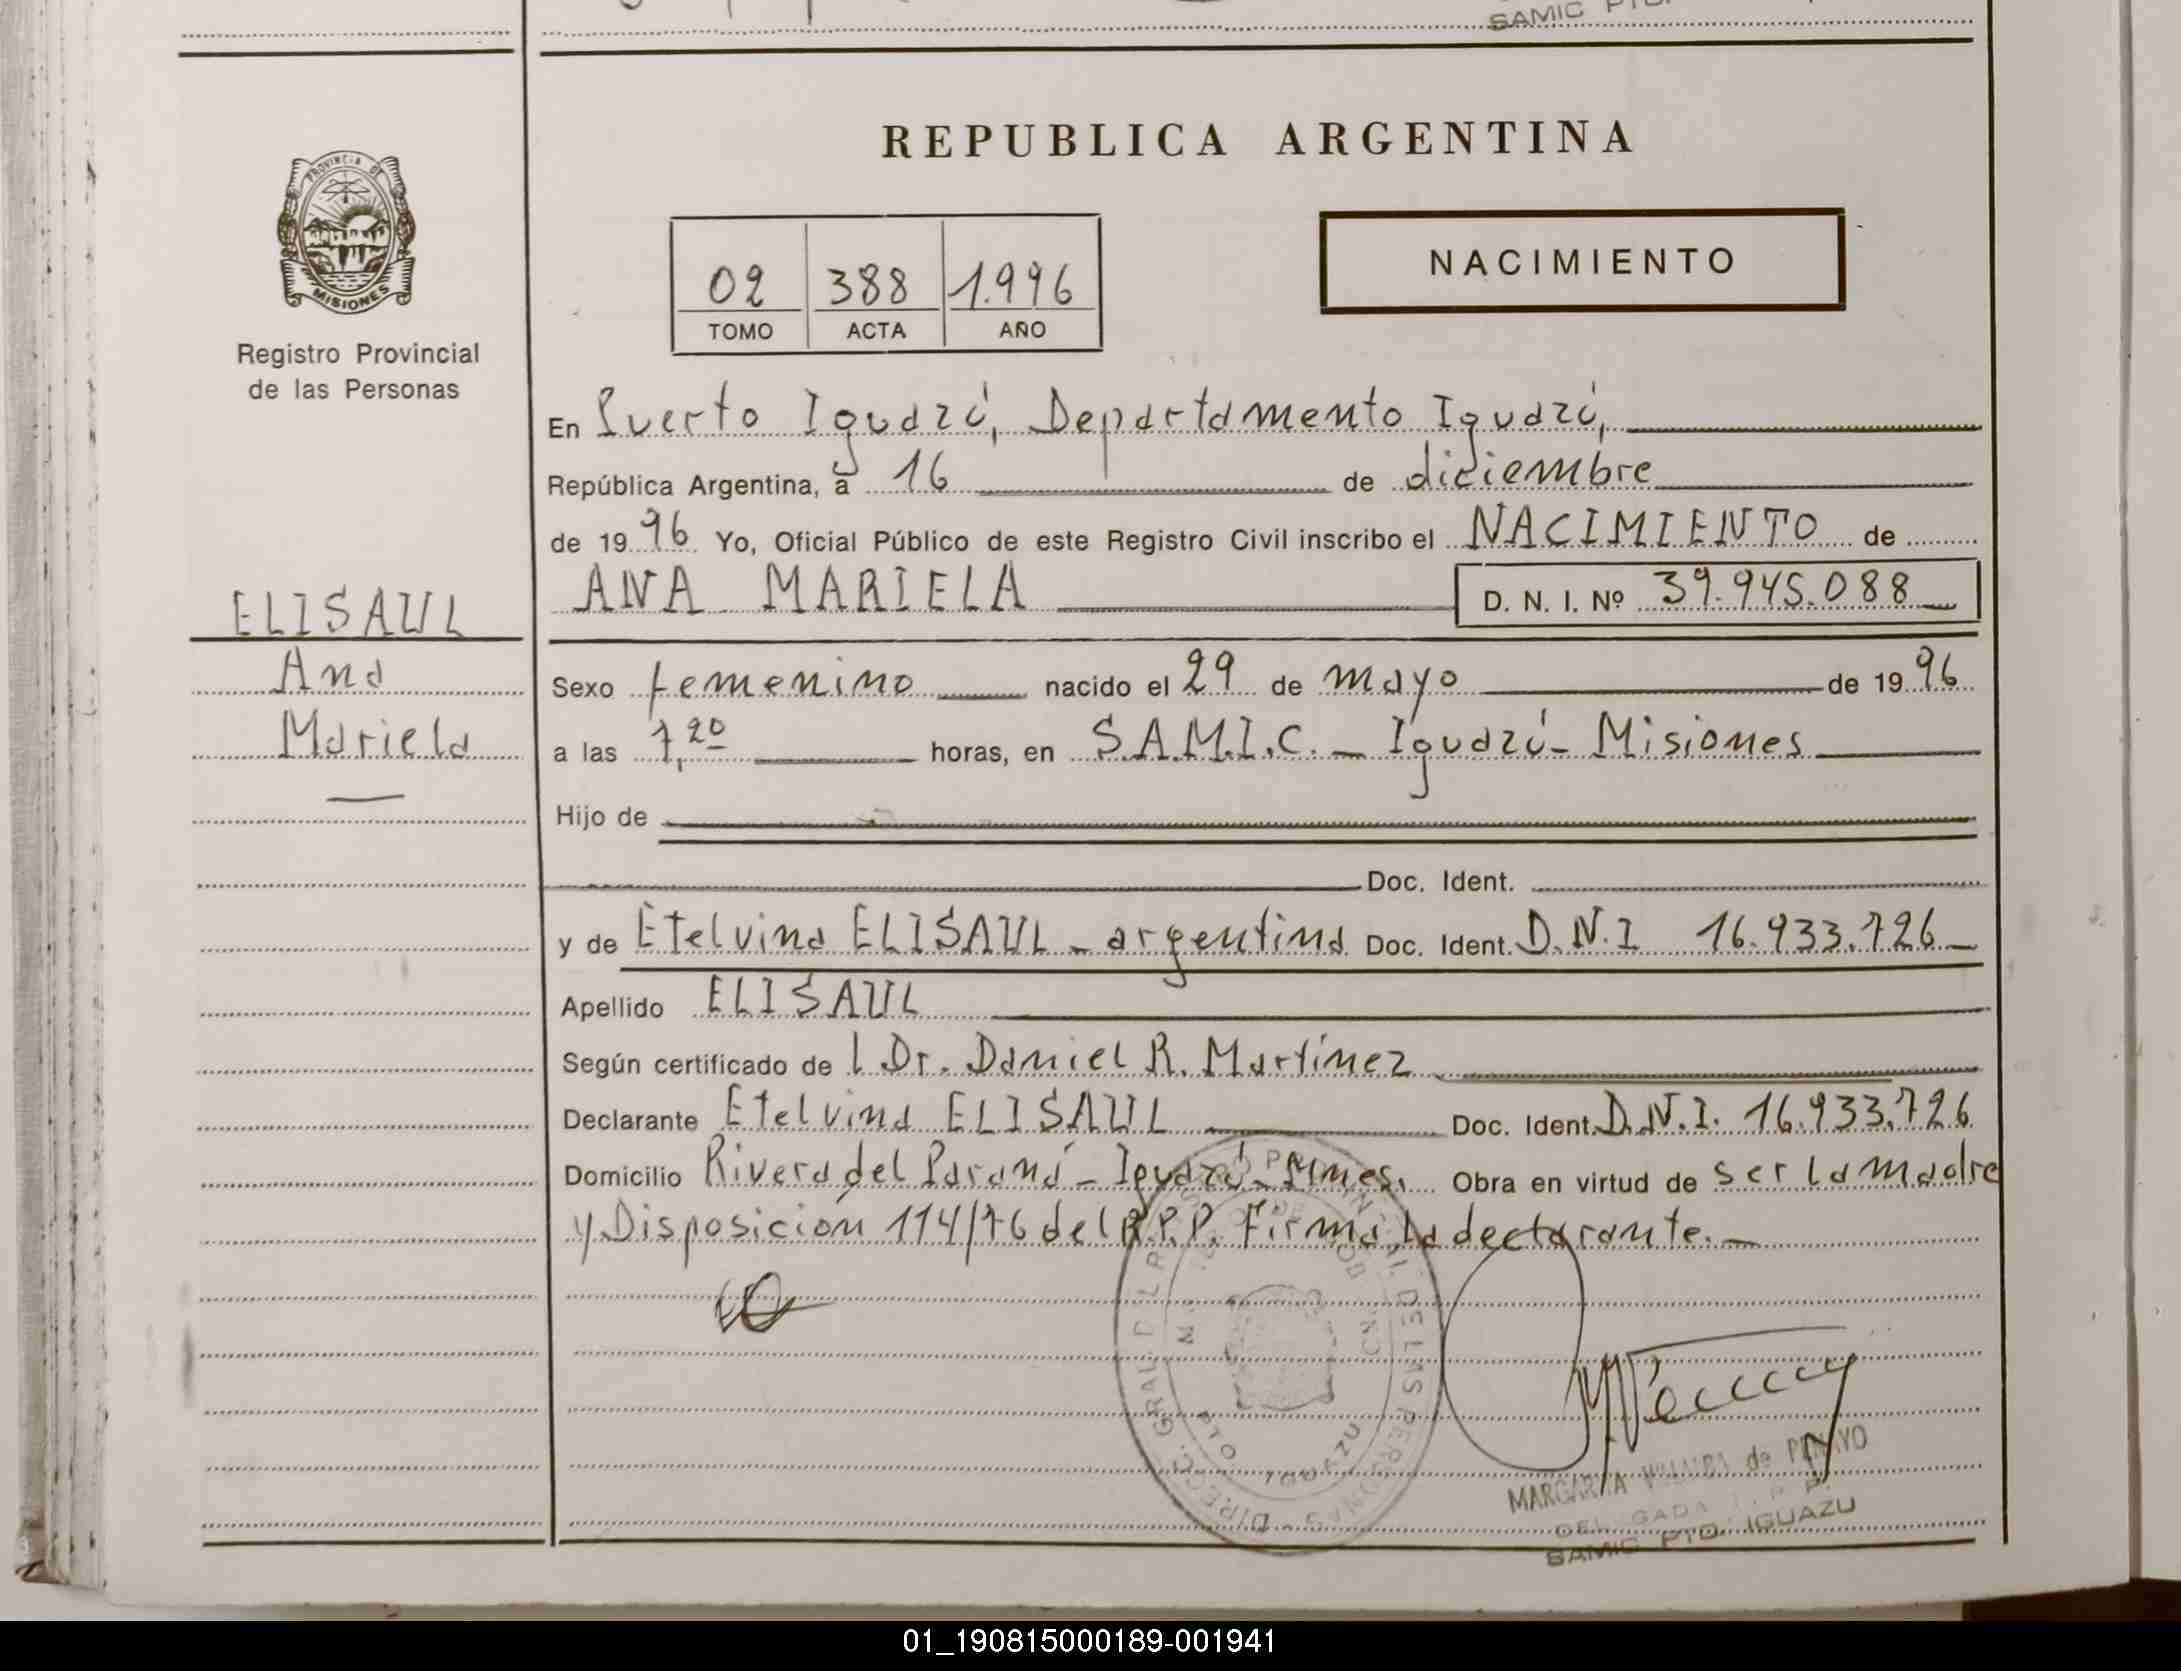 SAMIC PTO.
REPUBLICA ARGENTINA
PROVINCIA DE
MISIONES
Registro Provincial
de las Personas
02 388 1.996
TOMO ACTA AÑO
NACIMIENTO
En Puerto Iguazú, Departamento Iguazú,
República Argentina, a 16 de diciembre
de 19 96 Yo, Oficial Público de este Registro Civil inscribo el NACIMIENTO de
ANA MARIELA D. N. I. Nº 39.945.088
ELISAUL
Ana
Mariela
Sexo femenino nacido el 29 de mayo de 19 96
a las 7,20 horas, en S.A.M.I.C. - Iguazú - Misiones
Hijo de
Doc. Ident.
y de Etelvina ELISAUL - argentina Doc. Ident. D.N.I 16.933.726
Apellido ELISAUL
Según certificado de l Dr. Daniel R. Martínez
Declarante Etelvina ELISAUL Doc. Ident. D.N.I. 16.933.726
Domicilio Rivera del Paraná - Iguazú - Mnes. Obra en virtud de ser la madre
y Disposición 114/76 del R.P.P. Firma la declarante.-
MARGARITA VILLALBA de PENAYO
DELEGADA R. P. P.
SAMIC PTO. IGUAZU
01_190815000189-001941